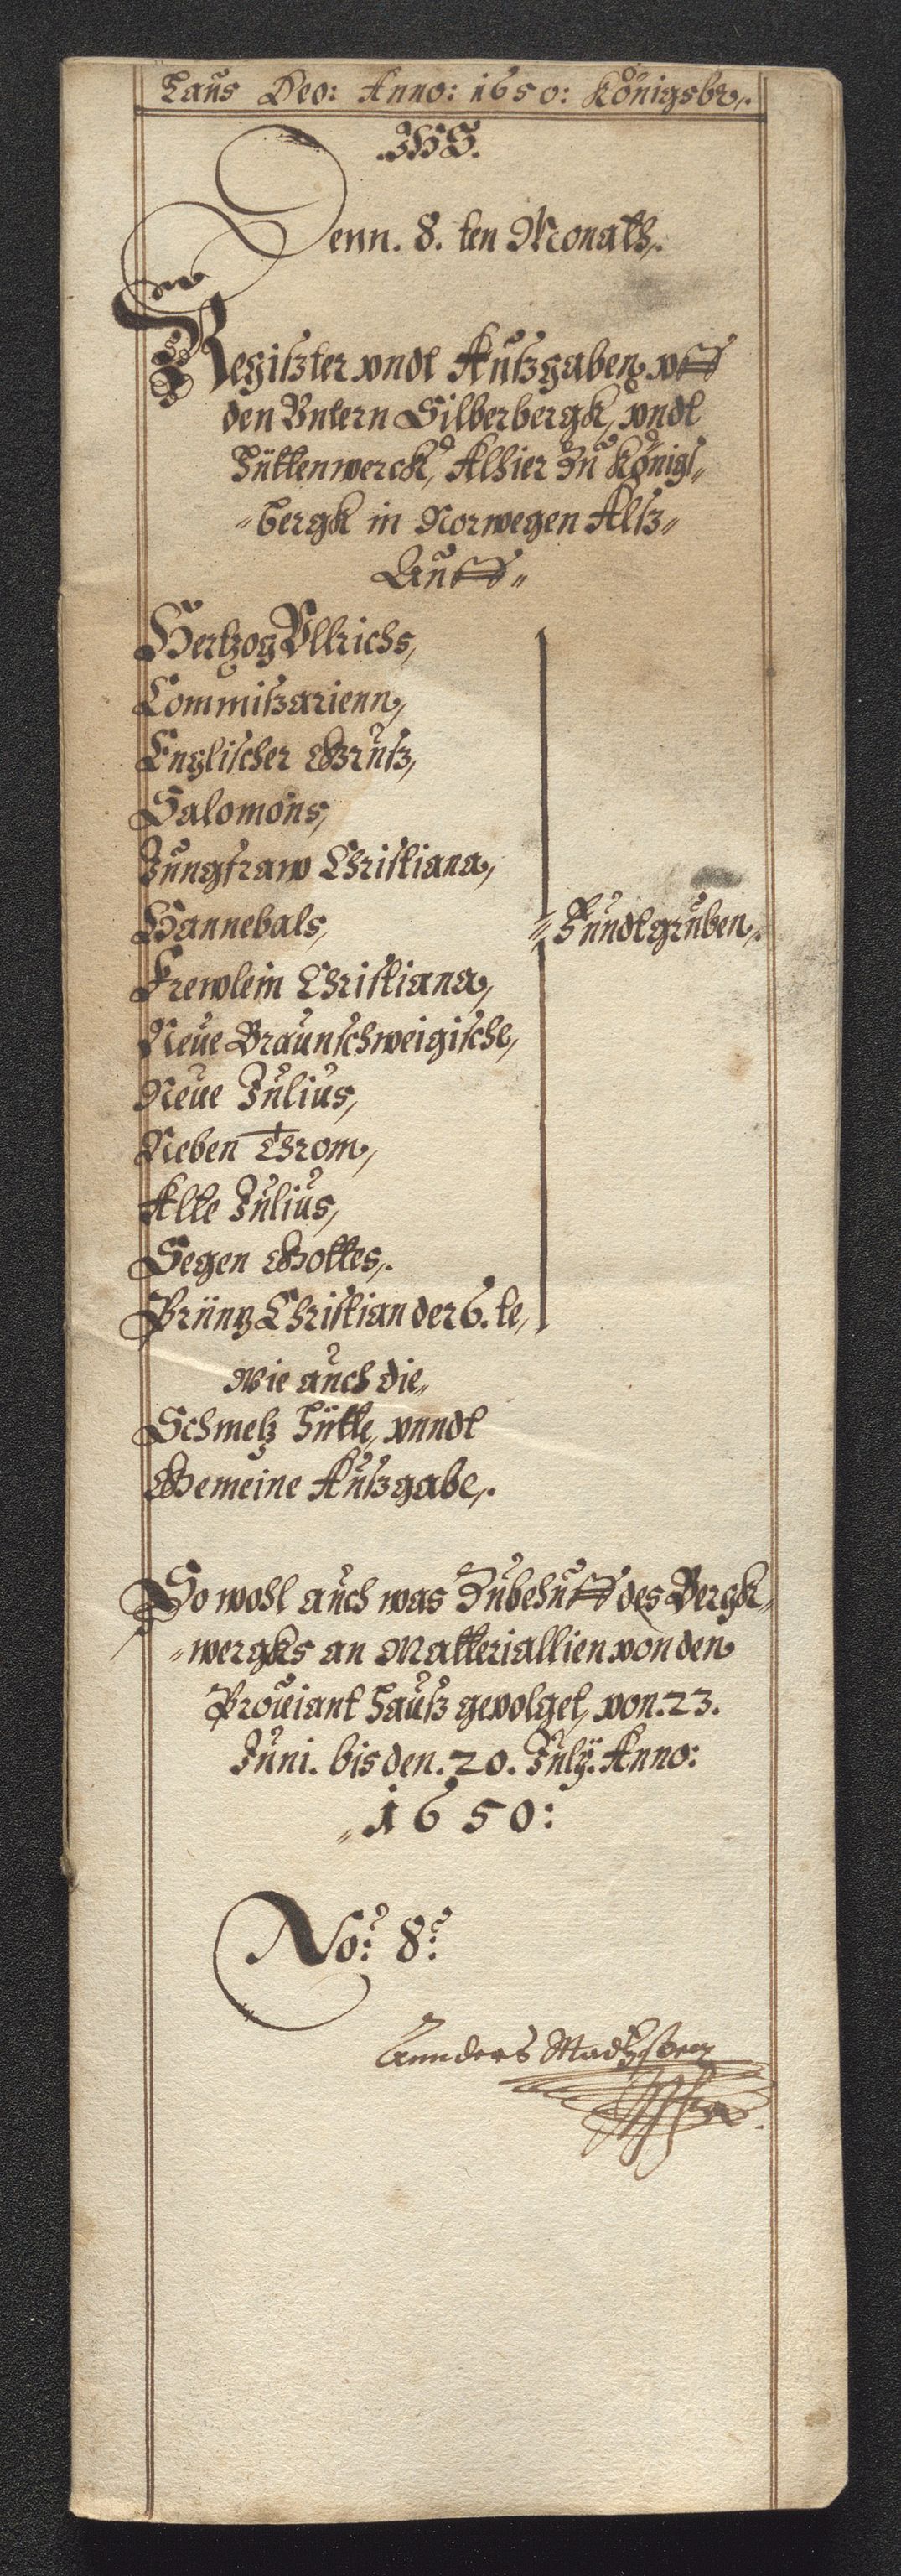 Laus Deo: Anno: 1650: Königsbr.
.IHS.
Denn. 8. ten Monats,.
Der
Regißter vndt Außgaben, vff
den Vntern Silberbergk, vndt
Hüttenwerck, Alhier Zu Königs„
„bergk in Norwegen Alß„
Auff„
Hertzog Vllrichs,
Commißarienn,
Englischer Gruß,
Salomons,
Jungfraw Christiana,
Hannebals,
„Fundtgruben,.
Frewlein Christiana,
Neue Braunschweigische,
Neue Julius,
Neben Throm,
Alte Julius,
Segen Gottes,.
Printz Christian der 6. te,
Wie auch die„
Schmeltz Hütte, vnndt
Gemeine Außgabe,.
So wohl auch was Zubehuff des Bergk„
„wergks an Matteriallien von den
Prouiant Hauß gevolget, von. 23.
Juni. bis den. 20. July: Anno:
„1650:
No: 8:
Annders Madhssen